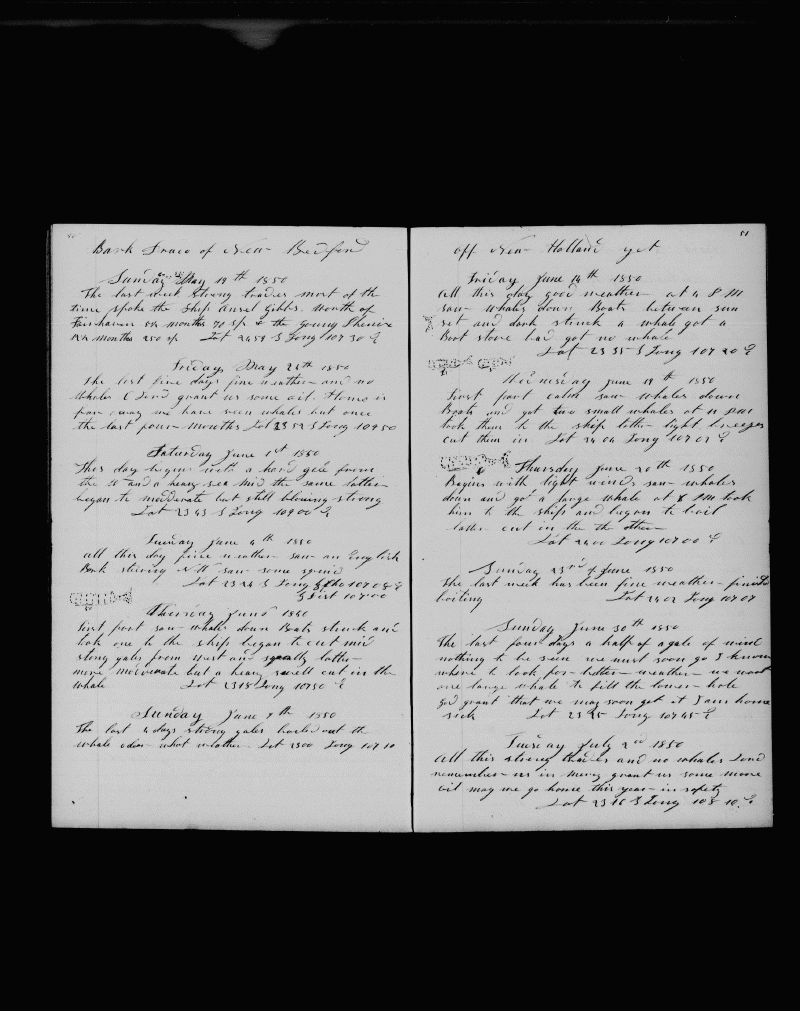 Bark Draco of New Bedford
Sunday May 19th 1850
The last week strong trades most of the
time spoke the Ship Ansel Gibbs. North of
Fairhaven months 70 sp & the young Phenix
months 250 sp Lat 2458 S Long 107 30 E
Friday May 25th 1850
the last five days fine weather and no
Whales O Lord grant us some oil. Home is
far away we have seen whales but once
the last four months Lat 23 52 S Long 109 50
Saturday June 1st 1850
This day begins with a hard gale from
the and a heavy sea Mid the same latter
began to moderate but still blowing strong
Lat 23 43 S Long 109 00 E
Tuesday June 4th 1850
all this day fine weather saw an English
Bark steering saw some
Lat 23 24 S Long 107 08 E
107 00
Thursday June 1850
first part saw whales down Boats struck and
took one to the ship began to cut mid
stong gales from West and squally latter
more moderate but a heavy swell cut in the
Whale Lat 2318 Long 10750 E
Sunday June 9th 1850
The last 4 days strong gales the
whale weather Lat 2300 Long 107 10
51
off New Holland yet
Friday June 14th 1850
all this day good weather at 4 P M
saw Whales down Boats between sun
set and dark struck a whale got a
Boat stove bad got no whale
Lat 23 35 S Long 107 20 E
Wednesday June 19th 1850
first part calm saw Whales down
Boats and got two small whales at PM
took them to the ship latter light breezes
cut them in Lat 24 04 Long 107 02 E
Thursday June 20th 1850
Begins with light winds saw whales
down and got a large whale at 8 PM took
him to the ship and began to boil
latter cut in the the other
Lat 2400 Long 107 00 E
Sunday 23rd of June 1850
The last week has been fine weather finisht
boiling Lat 24 02 Long 107 07
Sunday June 30th 1850
The last four days a half of a gale of wind
nothing to be seen we must soon go I know
where to look for better weather we want
one large whale to fill the lower hole
god grant that we may soon get it I am home
sick Lat 23 25 Long 107 45 E
Tuesday July 2nd 1850
all this strong trades and no whales Lord
remember us in mercy grant us some more
oil may we go home this year in safety
Lat 23 16 S Long 108 10 E